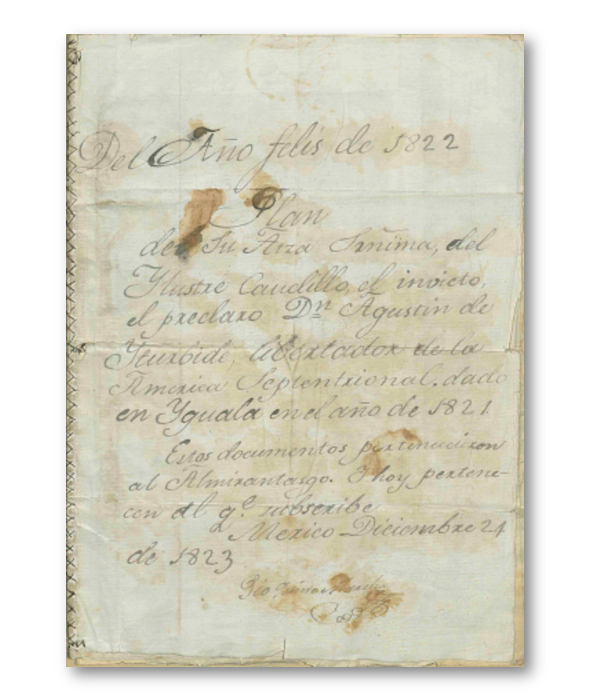 Del Año felis de 1822
Plan
de Su Atza Srñima, del
Ylustre Caudillo el invicto,
el preclaro Dn Agustin de
Yturbide, libertador de la
America Septentrional. dado
en Yguala en el año de 1821.
Estos documentos pertenecieron
al Almirantasgo. Y hoy pertene-
cen al qe. subscribe
Mexico Diciembre 24
de 1823